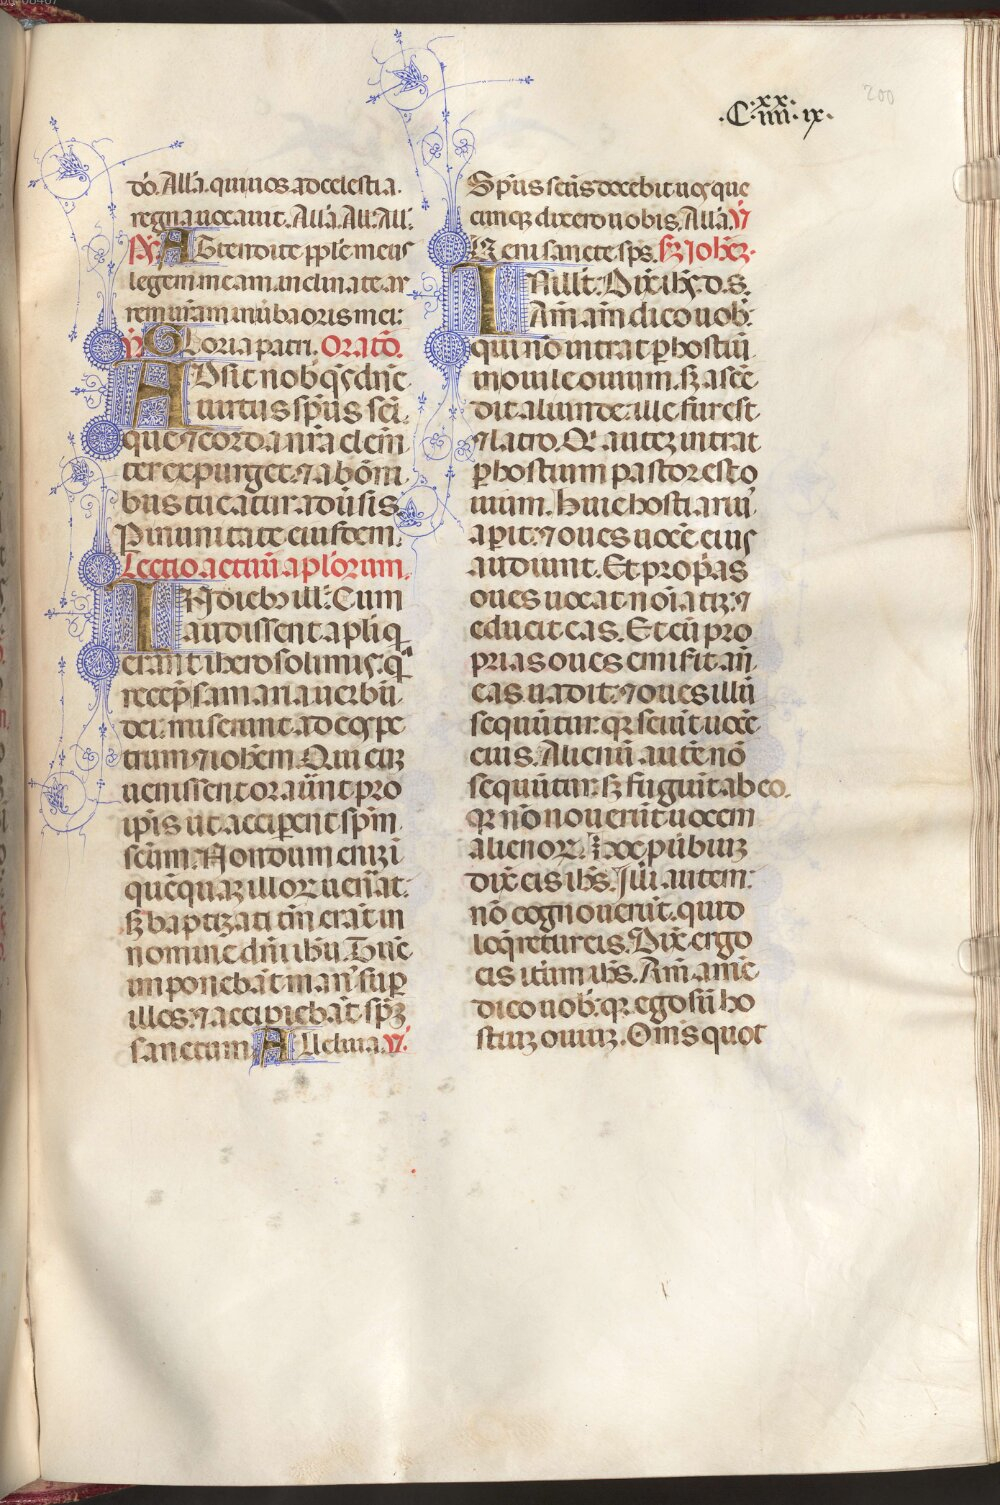 ·C·xx·iiii·ix·
200
dō. All'a. qui uos ad celestia.
regna uocauit. All'a. All'. All'.
P̄s. Attendite pp̄le meus
legem meam inclinate au
rem ur̄am in ūba oris mei:
V̄ Gloria patri. Oratō.
ADsit nob̄ q̄s dn̄e
uirtus sp̄us sc̄i.
que ⁊ corda nr̄a clem̄
ter expurget. ⁊ ab om̄i
bus tueatur aduīsis.
P in unitate eiusdem.
Lectio actuū apl̄orum.
IN dieb; ill'. Cum
audissent ap̄li q̄
erant iherosolimis. q̄
recep̄ samaria uerbū
dei. miserunt ad eos pe
trum ⁊ ioh̄em. Qui cuz
uenissent orauūt pro
ip̄is ut acciperent sp̄m
sc̄m. Nondum enim i
quēquaz illoꝝ uen̄at.
sꝫ baptizati tm̄ erāt in
nomine dn̄i ihū. Tūc
imponebāt man' sup̄
illos. ⁊ accipiebāt sp̄ꝫ
sanctum. Alleluia. V̄.
Sp̄us sc̄us docebit uos que
cunqꝫ dixero uobis. All'a. V̄
Veni sancte sp̄s. Sꝫ Joh̄eꝫ.
IN ill'. t'. Dix̄ ih̄s. d. s.
Am̄ am̄ dico uob̄.
qui nō intrat p̄ hostiū
in ouile ouium. sꝫ ascē
dit aliunde: ille fur est
⁊ latro. Q̄ autez intrat
p̄ hostium pastor est o
uium. Huic hostiariꝰ
apit. ⁊ oues uocē eius
audiunt. Et prop̄as
oues uocat noīatiꝫ. ⁊
educit eas. Et cū pro
prias oues emisit an̄
eas uadit. ⁊ oues illū
sequūtur. qꝛ sciūt uocē
eius. Alienū autē nō
sequūtur. sꝫ fugiūt ab eo.
qꝛ nō nouerūt uocem
alienoꝝ. Hoc puībiuꝫ
dix̄ eis ih̄s. Illi autem:
nō cognouerūt. quid
loq̄retur eis. Dix̄ ergo
eis itūm ih̄s. Am̄ amē
dico uob̄. qꝛ ego sū ho
stiuꝫ ouiuꝫ. Om̄s quot